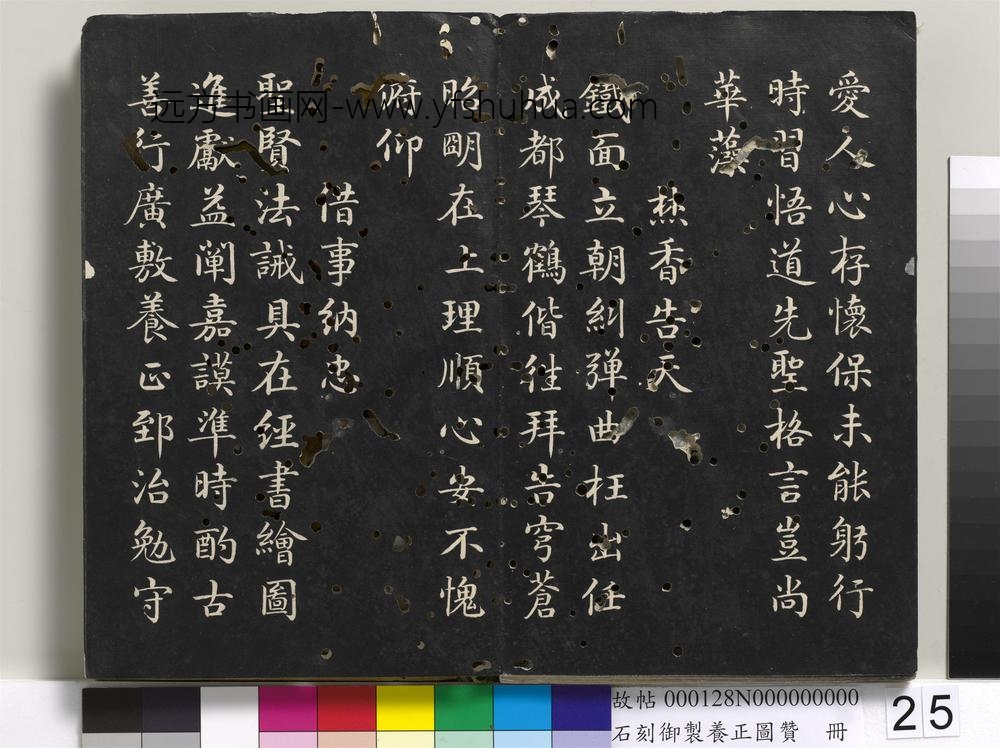 愛人心存懷保未能躬行
時習悟道先聖格言豈尚
華藻
焚香告天
鐵面立朝糾彈曲枉出任
成都琴鶴偕往拜告穹蒼
昭朙在上理順心安不愧
俯仰
借事納忠
聖賢法誡具在經書繪圖
進獻益闡嘉謨準時酌古
善行廣敷養正郅治勉守
远方书画网-www.yfshuhua.com
故帖 000128N000000000
石刻御製養正圖贊 冊
25